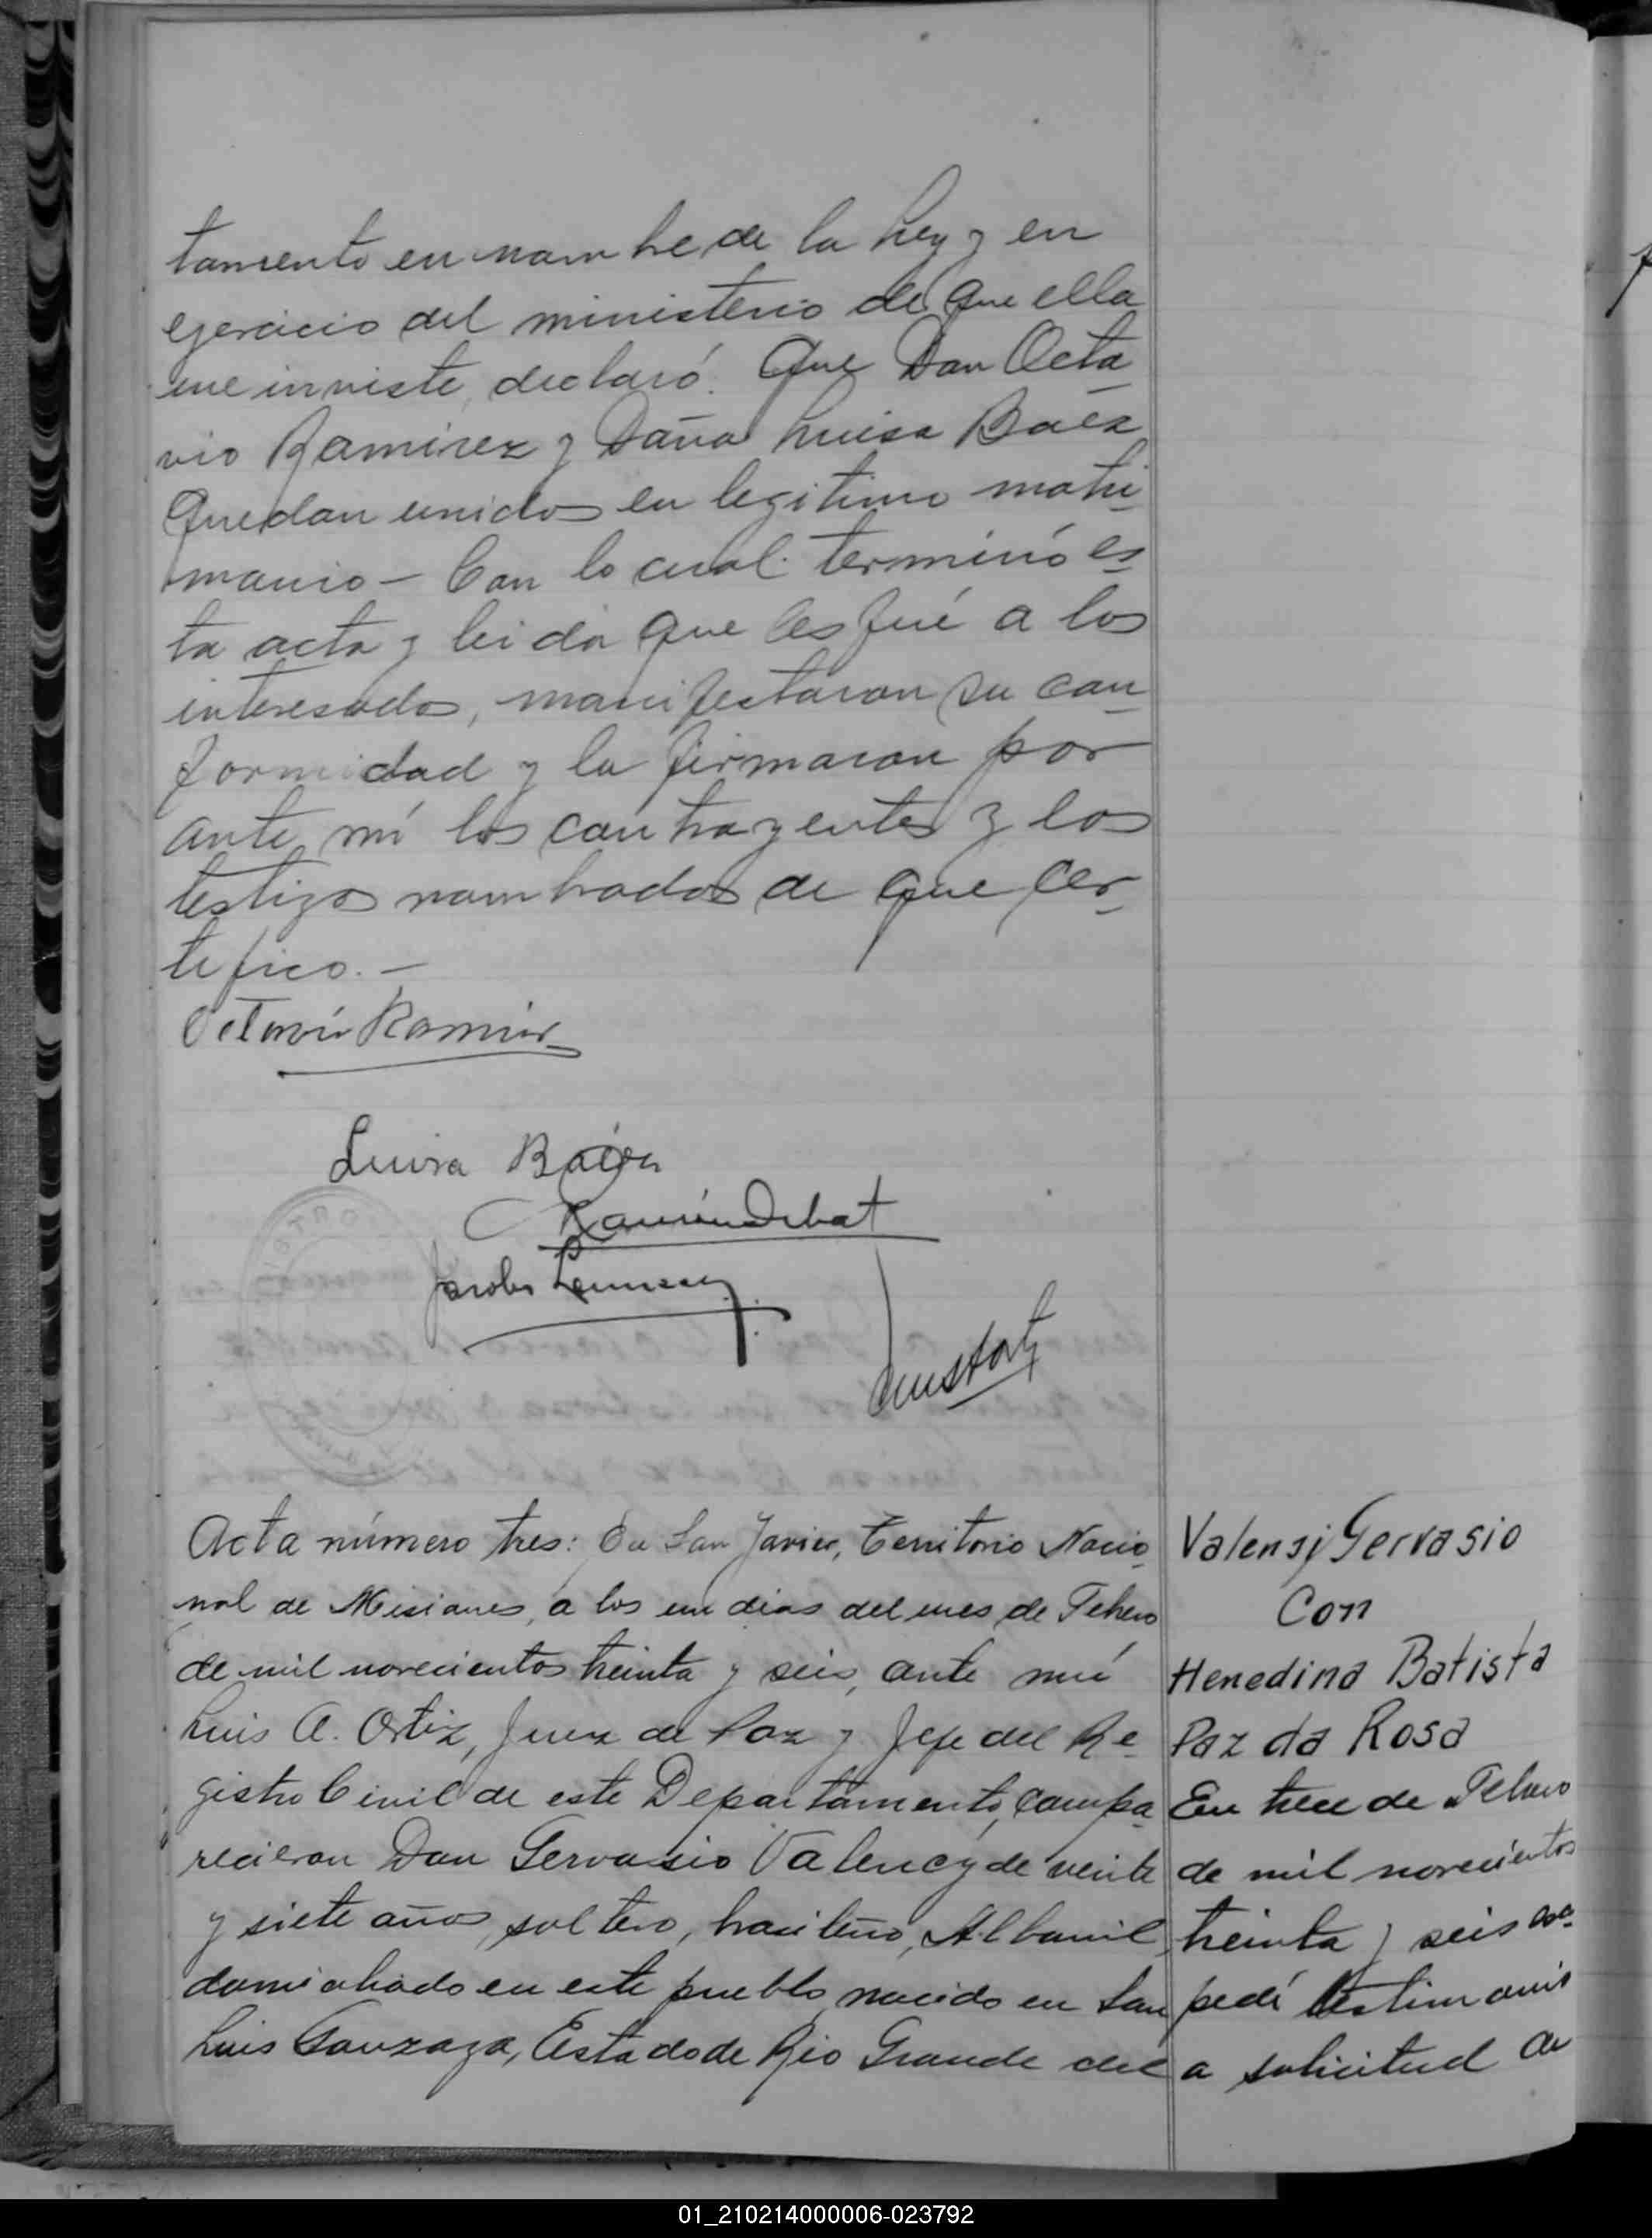 tamento en nombre de la Ley y en
ejercicio del ministerio de que ella
me inviste, declaró. Que Don Octa
vio Ramirez y Doña Luisa Baéz
Quedan unidos en legitimo matri
monio - Con lo cual terminó es
ta acta y leida que les fué a los
interesados, manifestaron su con
formidad y la firmaron por
ante mí los contrayentes y los
testigos nombrados de que cer
tifico. -
Octavio Ramirez
Luisa Baéz
Ramón Debat
Acta número tres: En San Javier, Territorio Nacio
nal de Misiones, a los un dias del mes de Febrero
de mil novecientos treinta y seis, ante mí
Luis A. Ortiz, Juez de Paz y Jefe del Re
gistro Civil de este Departamento, compa
recieron Don Gervasio Valency de veinte
y siete años, soltero, brasileño, Albanil
domiciliado en este pueblo, nacido en San
Luis Gonzaga, Estado de Rio Grande del
Valensi Gervasio
Con
Henedina Batista
Paz da Rosa
En trece de Febrero
de mil novecientos
treinta y seis
pedí testimonio
a solicitud de
01_210214000006-023792